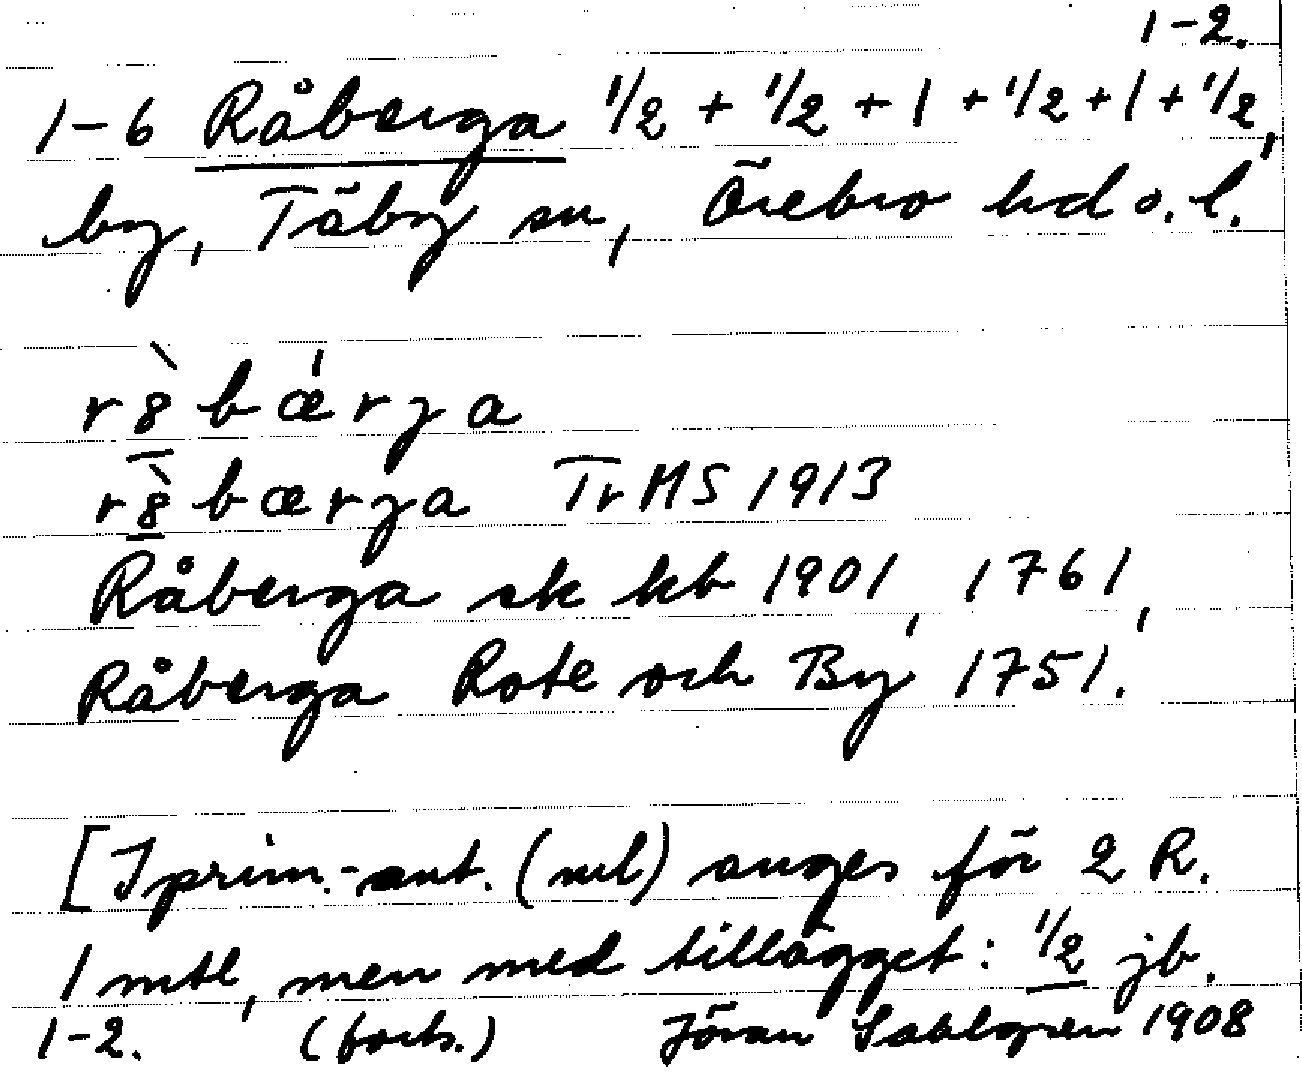 1-2.
1-6 Råberga 1/2 + 1/2 + 1 + 1/2 + 1 + 1/2,
by, Täby sn, Örebro hd o. l.
r8̀bǽrga
r8̀bærga TrMS 1913
Råberga sk kb 1901, 1761,
Råberga Rote och By 1751.
[I prim.-ant. (ml) anges för 2 R.
1 mtl, men med tillägget: 1/2 jb.
1-2. (forts.) Jöran Sahlgren 1908